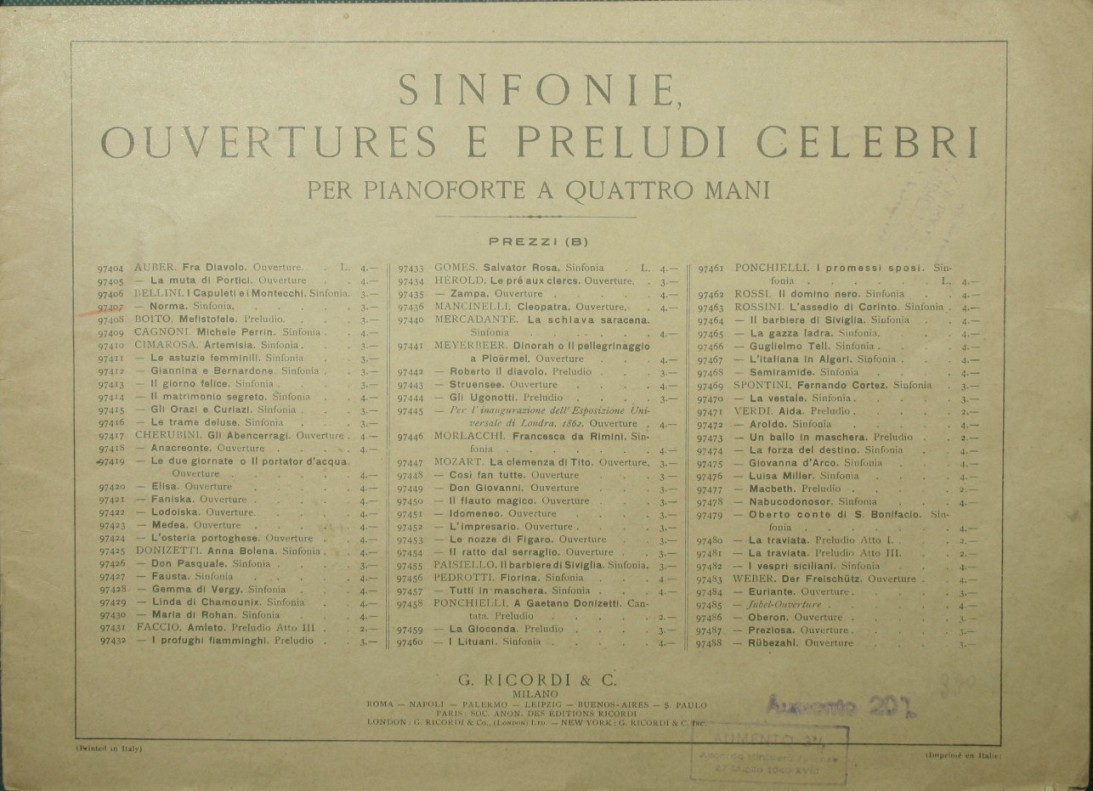 SINFONIE,
OUVERTURES E PRELUDI CELEBRI
PER PIANOFORTE A QUATTRO MANI
PREZZI (B)
97404 AUBER. Fra Diavolo. Ouverture. . L. 4.—
97405 — La muta di Portici. Ouverture . . 4.—
97406 BELLINI. I Capuleti e i Montecchi. Sinfonia. 3.—
97407 — Norma. Sinfonia. . . . . 3.—
97408 BOITO. Mefistofele. Preludio. . . 3.—
97409 CAGNONI. Michele Perrin. Sinfonia . . 4.—
97410 CIMAROSA. Artemisia. Sinfonia . . . 3.—
97411 — Le astuzie femminili. Sinfonia . . 3.—
97412 — Giannina e Bernardone. Sinfonia . . 3.—
97413 — Il giorno felice. Sinfonia . . . 3.—
97414 — Il matrimonio segreto. Sinfonia . . 4.—
97415 — Gli Orazi e Curiazi. Sinfonia . . . 3.—
97416 — Le trame deluse. Sinfonia . . . 3.—
97417 CHERUBINI. Gli Abencerragi. Ouverture . 4.—
97418 — Anacreonte. Ouverture . . . 4.—
97419 — Le due giornate o Il portator d'acqua.
Ouverture . . . . . 4.—
97420 — Elisa. Ouverture . . . . 4.—
97421 — Faniska. Ouverture . . . . 4.—
97422 — Lodoiska. Ouverture. . . . 4.—
97423 — Medea. Ouverture . . . . 4.—
97424 — L'osteria portoghese. Ouverture . . 4.—
97425 DONIZETTI. Anna Bolena. Sinfonia . . 4.—
97426 — Don Pasquale. Sinfonia . . . 3.—
97427 — Fausta. Sinfonia . . . . 4.—
97428 — Gemma di Vergy. Sinfonia . . . 4.—
97429 — Linda di Chamounix. Sinfonia . . 4.—
97430 — Maria di Rohan. Sinfonia . . . 4.—
97431 FACCIO. Amleto. Preludio Atto III . . 2.—
97432 — I profughi fiamminghi. Preludio . . 3.—
97433 GOMES. Salvator Rosa. Sinfonia . L. 4.—
97434 HÉROLD. Le pré aux clercs. Ouverture. . 3.—
97435 — Zampa. Ouverture . . . . 4.—
97436 MANCINELLI. Cleopatra. Ouverture. . 4.—
97440 MERCADANTE. La schiava saracena.
Sinfonia . . . . . 4.—
97441 MEYERBEER. Dinorah o Il pellegrinaggio
a Ploërmel. Ouverture . . . 4.—
97442 — Roberto il diavolo. Preludio . . . 3.—
97443 — Struensee. Ouverture . . . 4.—
97444 — Gli Ugonotti. Preludio . . . 3.—
97445 — Per l'inaugurazione dell'Esposizione Uni-
versale di Londra, 1862. Ouverture . 4.—
97446 MORLACCHI. Francesca da Rimini. Sin-
fonia . . . . . 4.—
97447 MOZART. La clemenza di Tito. Ouverture. 3.—
97448 — Così fan tutte. Ouverture . . . 3.—
97449 — Don Giovanni. Ouverture . . . 3.—
97450 — Il flauto magico. Ouverture . . . 3.—
97451 — Idomeneo. Ouverture . . . 3.—
97452 — L'impresario. Ouverture . . . 3.—
97453 — Le nozze di Figaro. Ouverture . . 3.—
97454 — Il ratto dal serraglio. Ouverture . . 3.—
97455 PAISIELLO. Il barbiere di Siviglia. Sinfonia. 3.—
97456 PEDROTTI. Fiorina. Sinfonia . . . 4.—
97457 — Tutti in maschera. Sinfonia . . . 4.—
97458 PONCHIELLI. A Gaetano Donizetti. Can-
tata. Preludio . . . . 2.—
97459 — La Gioconda. Preludio . . . 3.—
97460 — I Lituani. Sinfonia . . . . 4.—
97461 PONCHIELLI. I promessi sposi. Sin-
fonia . . . . L. 4.—
97462 ROSSI. Il domino nero. Sinfonia . . 4.—
97463 ROSSINI. L'assedio di Corinto. Sinfonia . 4.—
97464 — Il barbiere di Siviglia. Sinfonia . . 4.—
97465 — La gazza ladra. Sinfonia. . . . 4.—
97466 — Guglielmo Tell. Sinfonia . . . 4.—
97467 — L'Italiana in Algeri. Sinfonia . . 4.—
97468 — Semiramide. Sinfonia . . . 4.—
97469 SPONTINI. Fernando Cortez. Sinfonia . 3.—
97470 — La vestale. Sinfonia . . . . 4.—
97471 VERDI. Aida. Preludio . . . . 2.—
97472 — Aroldo. Sinfonia . . . . 4.—
97473 — Un ballo in maschera. Preludio . . 2.—
97474 — La forza del destino. Sinfonia . . 4.—
97475 — Giovanna d'Arco. Sinfonia . . 4.—
97476 — Luisa Miller. Sinfonia . . . 4.—
97477 — Macbeth. Preludio . . . . 2.—
97478 — Nabucodonosor. Sinfonia . . . 4.—
97479 — Oberto conte di S. Bonifacio. Sin-
fonia . . . . . 4.—
97480 — La traviata. Preludio Atto I. . . 2.—
97481 — La traviata. Preludio Atto III. . . 2.—
97482 — I vespri siciliani. Sinfonia . . . 4.—
97483 WEBER. Der Freischütz. Ouverture . . 4.—
97484 — Euriante. Ouverture . . . . 3.—
97485 — Jubel-Ouverture . . . . 4.—
97486 — Oberon. Ouverture . . . . 4.—
97487 — Preziosa. Ouverture . . . . 3.—
97488 — Rübezahl. Ouverture . . . 3.—
G. RICORDI & C.
MILANO
ROMA — NAPOLI — PALERMO — LEIPZIG — BUENOS-AIRES — S. PAULO
PARIS: SOC. ANON. DES EDITIONS RICORDI
LONDON: G. RICORDI & Co., (London) Ltd. — NEW YORK: G. RICORDI & C. Inc.
Aumento 20%
AUMENTO
(Printed in Italy)
(Imprimé en Italie)